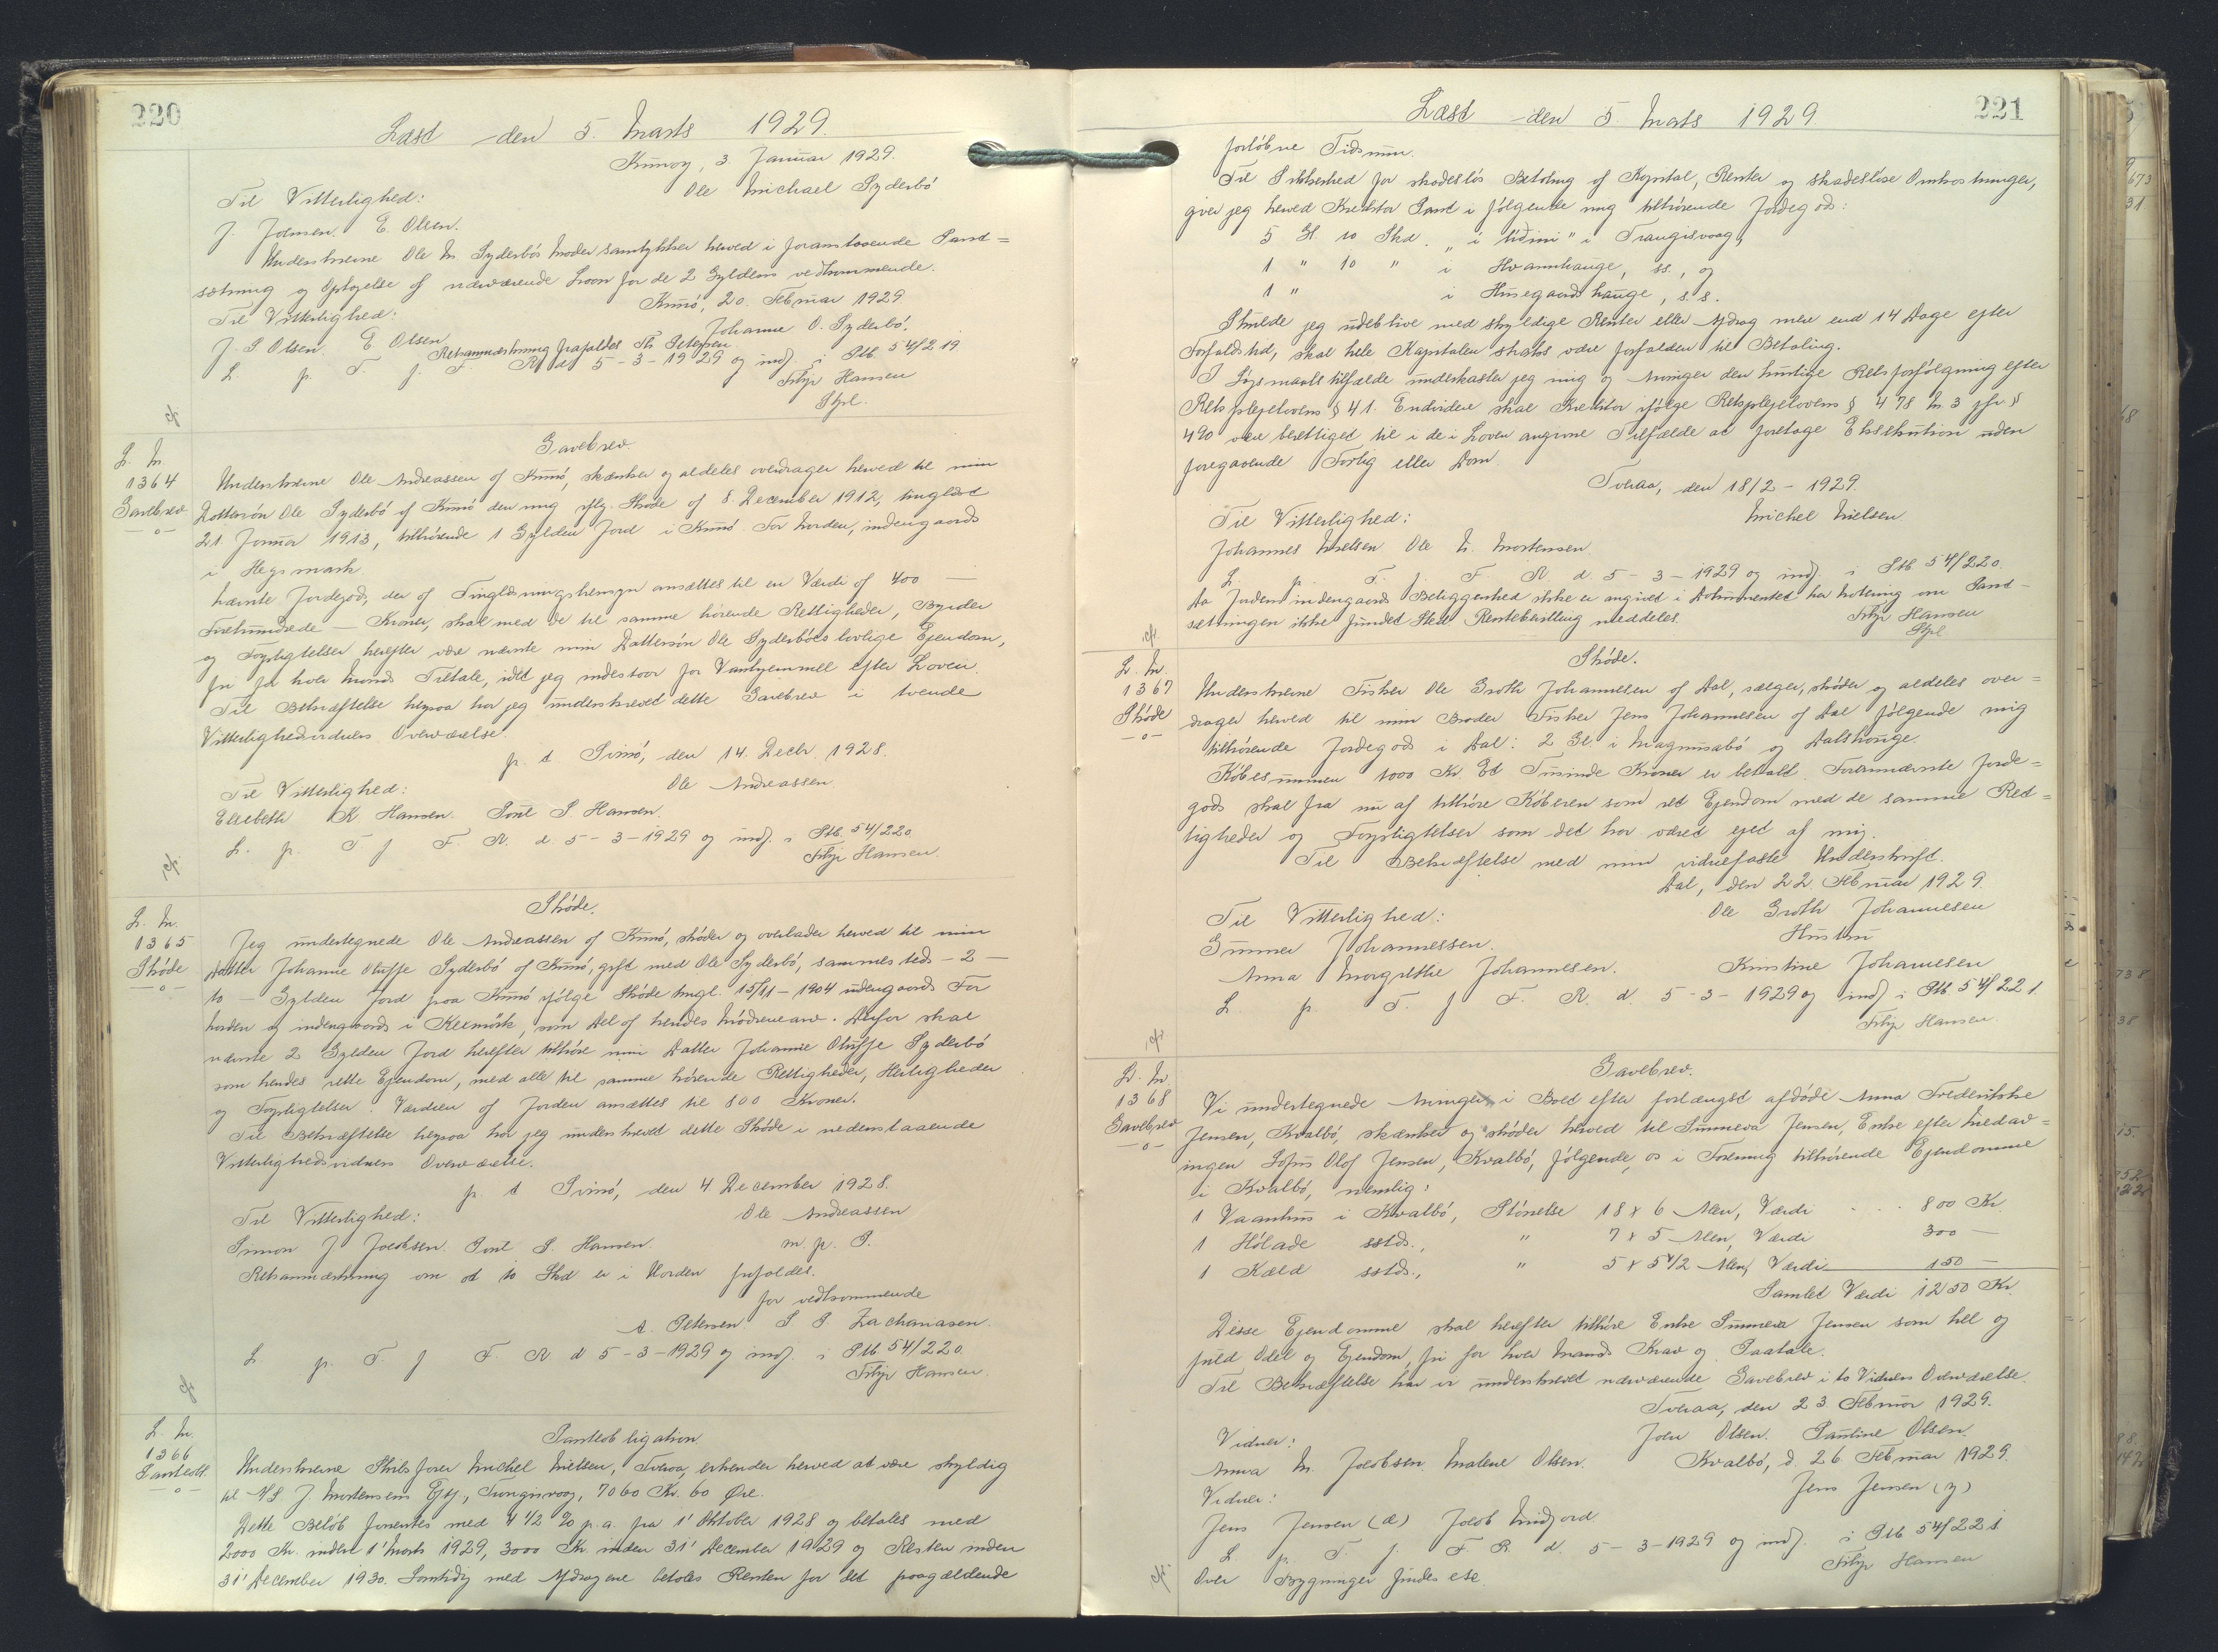 220
Læst den 5. Marts 1929.
Kunoy, 3. Januar 1929.
Til Vitterlighed: Ole Michael Syderbö
J. Joensen. E. Olsen.
Underskrevne Ole M. Syderbös Moder samtykker herved i foranstaaende Pand=
sætning og Optagelse af nærværende Laan for de 2 Gyldens vedkommende.
Kunö, 20. Februar 1929
Til Vitterlighed: Johanne O. Syderbö.
J. S Olsen. E Olsen
Retsanmærkning frafaldes Th Petersen
L. p. T. f. F. R d. 5-3-1929 og indf. i Ptb. 54/219
Filip Hansen
Gavebrev.
L. Nr.
1364
Gavebrev
Underskrevne Ole Andreassen af Kunö, skænker og aldeles overdrager herved til min
Dattersön Ole Syderbö af Kunö den mig iflg. Sköde af 8. December 1912, tinglæst
21. Januar 1913, tilhörende 1 Gylden Jord i Kunö For Norden, indengaards
i Hegsmark.
Nævnte Jordegods, der af Tinglæsningshensyn ansættes til en Værdi af 400 —
Firehundrede — Kroner, skal med de til samme hörende Rettigheder, Byrder
og Forpligtelser herefter være nævnte min Dattersön Ole Syderböes lovlige Ejendom,
fri for hver Mands Tiltale, idet jeg indestaar for Vanhjemmel efter Loven.
Til Bekræftelse herpaa har jeg underskrevet dette Gavebrev i tvende
Vitterlighedsvidners Overværelse.
p t Svinö, den 14. Decbr. 1928.
Til Vitterlighed: Ole Andreassen
Elsebeth K. Hansen. Poul S. Hansen.
L. p. T f F. R. d. 5-3-1929 og indf. i Ptb. 54/220
Filip Hansen.
Sköde.
L. Nr.
1365
Sköde
Jeg undertegnede Ole Andreassen af Kunö, sköder og overlader herved til min
Datter Johanne Oluffe Syderbö af Kunö, gift med Ole Syderbö, sammesteds - 2 -
to - Gylden Jord paa Kunö ifölge Sköde tingl. 15/11-1904 udengaards For
Norden og indengaards i Keemörk, som Del af hendes Mödrenearv. Derfor skal
nævnte 2 Gylden Jord herefter tilhöre min Datter Johanne Oluffe Syderbö
som hendes rette Ejendom, med alle til samme hörende Rettigheder, Herligheder
og Forpligtelser. Værdien af Jorden ansættes til 800 Kroner.
Til Bekræftelse herpaa har jeg underskrevet dette Sköde i nedenstaaende
Vitterlighedsvidners Overværelse.
p t Svinö, den 4. December 1928.
Til Vitterlighed: Ole Andreassen
Simon J Jacobsen. Poul S. Hansen. m. p. P.
Retsanmærkning om at to Skd er i Norden frafaldes.
for vedkommende
A. Petersen S. P. Zachariasen.
L. p. T. f F. R d 5-3-1929 og indf. i Ptb. 54/220.
Filip Hansen.
Panteobligation.
L. Nr.
1366
Panteobl.
Underskrevne Skibsfører Michel Nielsen, Tveraa, erkender herved at være skyldig
til A/S J. Mortensens Eftf., Trongisvaag, 7060 Kr. 60 Øre.
Dette Belöb forrentes med 4 1/2 % p.a. fra 1' Oktober 1928 og betales med
2000 Kr. inden 1' Marts 1929, 3000 Kr. inden 31' December 1929 og Resten inden
31' December 1930. Samtidig med Afdragene betales Renten for det paagældende
221
Læst den 5 Marts 1929
forlöbne Tidsrum.
Til Sikkerhed for skadeslös Betaling af Kapital, Renter og skadeslöse Omkostninger,
giver jeg herved Kreditor Pant i fölgende mig tilhörende Jordegods:
5 Gl. 10 Skd. "í Liðini" i Trangisvaag,
1 " 10 " i Hvannhauge, ss., og
1 " i Husegaardshauge, s.s.
Skulde jeg udeblive med skyldige Renter eller Afdrag mere end 14 Dage efter
Forfaldstid, skal hele Kapitalen straks være forfalden til Betaling.
I Søgsmaalstilfælde underkaster jeg mig og Arvinger den hurtige Retsforfölgning efter
Retsplejelovens § 41. Endvidere skal Kreditor ifölge Retsplejelovens § 478 Nr. 3 jfr. §
490 være berettiget til i de i Loven angivne Tilfælde at foretage Eksekution uden
foregaaende Forlig eller Dom.
Tveraa, den 18/2 - 1929.
Til Vitterlighed: Michel Nielsen
Johannes Nielsen Ole M. Mortensen
L. p. T. f. F. R. d. 5-3-1929 og indf. i Ptb. 54/220.
Da Jordens indengaards Beliggenhed ikke er angivet i Dokumentet har Notering om Pand-
sætningen ikke fundet Sted. Rentebevilling meddeles. Filip Hansen
Sköde.
L. Nr.
1367
Sköde
Underskrevne Fisker Ole Groth Johannesen af Dal, sælger, sköder og aldeles over=
drager herved til min Broder Fisker Jens Johannesen af Dal fölgende mig
tilhörende Jordegods i Dal: 2 Gl. i Magnusabö og Dalshauge.
Köbesummen 1000 Kr. Et Tusinde Kroner er betalt. Forannævnte Jorde=
gods skal fra nu af tilhöre Köberen som ret Ejendom med de samme Ret=
tigheder og Forpligtelser som det har været ejet af mig.
Til Bekræftelse med min vidnefaste Underskrift.
Dal, den 22. Februar 1929.
Til Vitterlighed: Ole Groth Johannesen
Gunner Johannessen. Hustru
Anna Margrethe Johannesen. Kirstine Johannesen
L. p. T. f F. R. d. 5-3-1929 og indf i Ptb. 54/221.
Filip Hansen.
Gavebrev.
L. Nr.
1368
Gavebrev
Vi undertegnede Arvinger i Boet efter forlængst afdöde Anna Frederikke
Jensen, Kvalbö, skænker og sköder herved til Sunneva Jensen, Enke efter Medarv=
ingen Sofus Olof Jensen, Kvalbö, fölgende os i Forening tilhörende Ejendomme
i Kvalbö, nemlig:
1 Vaanhus i Kvalbö, Störrelse 18 x 6 Alen, Værdi - - - 800 Kr.
1 Hölade sstds., " 7 x 5 Alen, Værdi 300 -
1 Kæld sstds., " 5 x 5 1/2 Alen, Værdi 150 -
Samlet Værdi 1250 Kr.
Disse Ejendomme skal herefter tilhöre Enke Sunneva Jensen som hel og
fuld Odel og Ejendom, fri for hver Mands Krav og Paatale.
Til Bekræftelse har vi underskrevet nærværende Gavebrev i to Vidners Overværelse.
Tveraa, den 23 Februar 1929.
Vidner: Joen Olsen. Pauline Olsen.
Anna M. Jacobsen. Malene Olsen. Kvalbö, d. 26 Februar 1929.
Vidner: Jens Jensen (y)
Jens Jensen (æ) Jacob Lindsord
L p. T. f. F. R. d. 5-3-1929 og indf. i Ptb 54/221
Over Bygninger findes ete. Filip Hansen